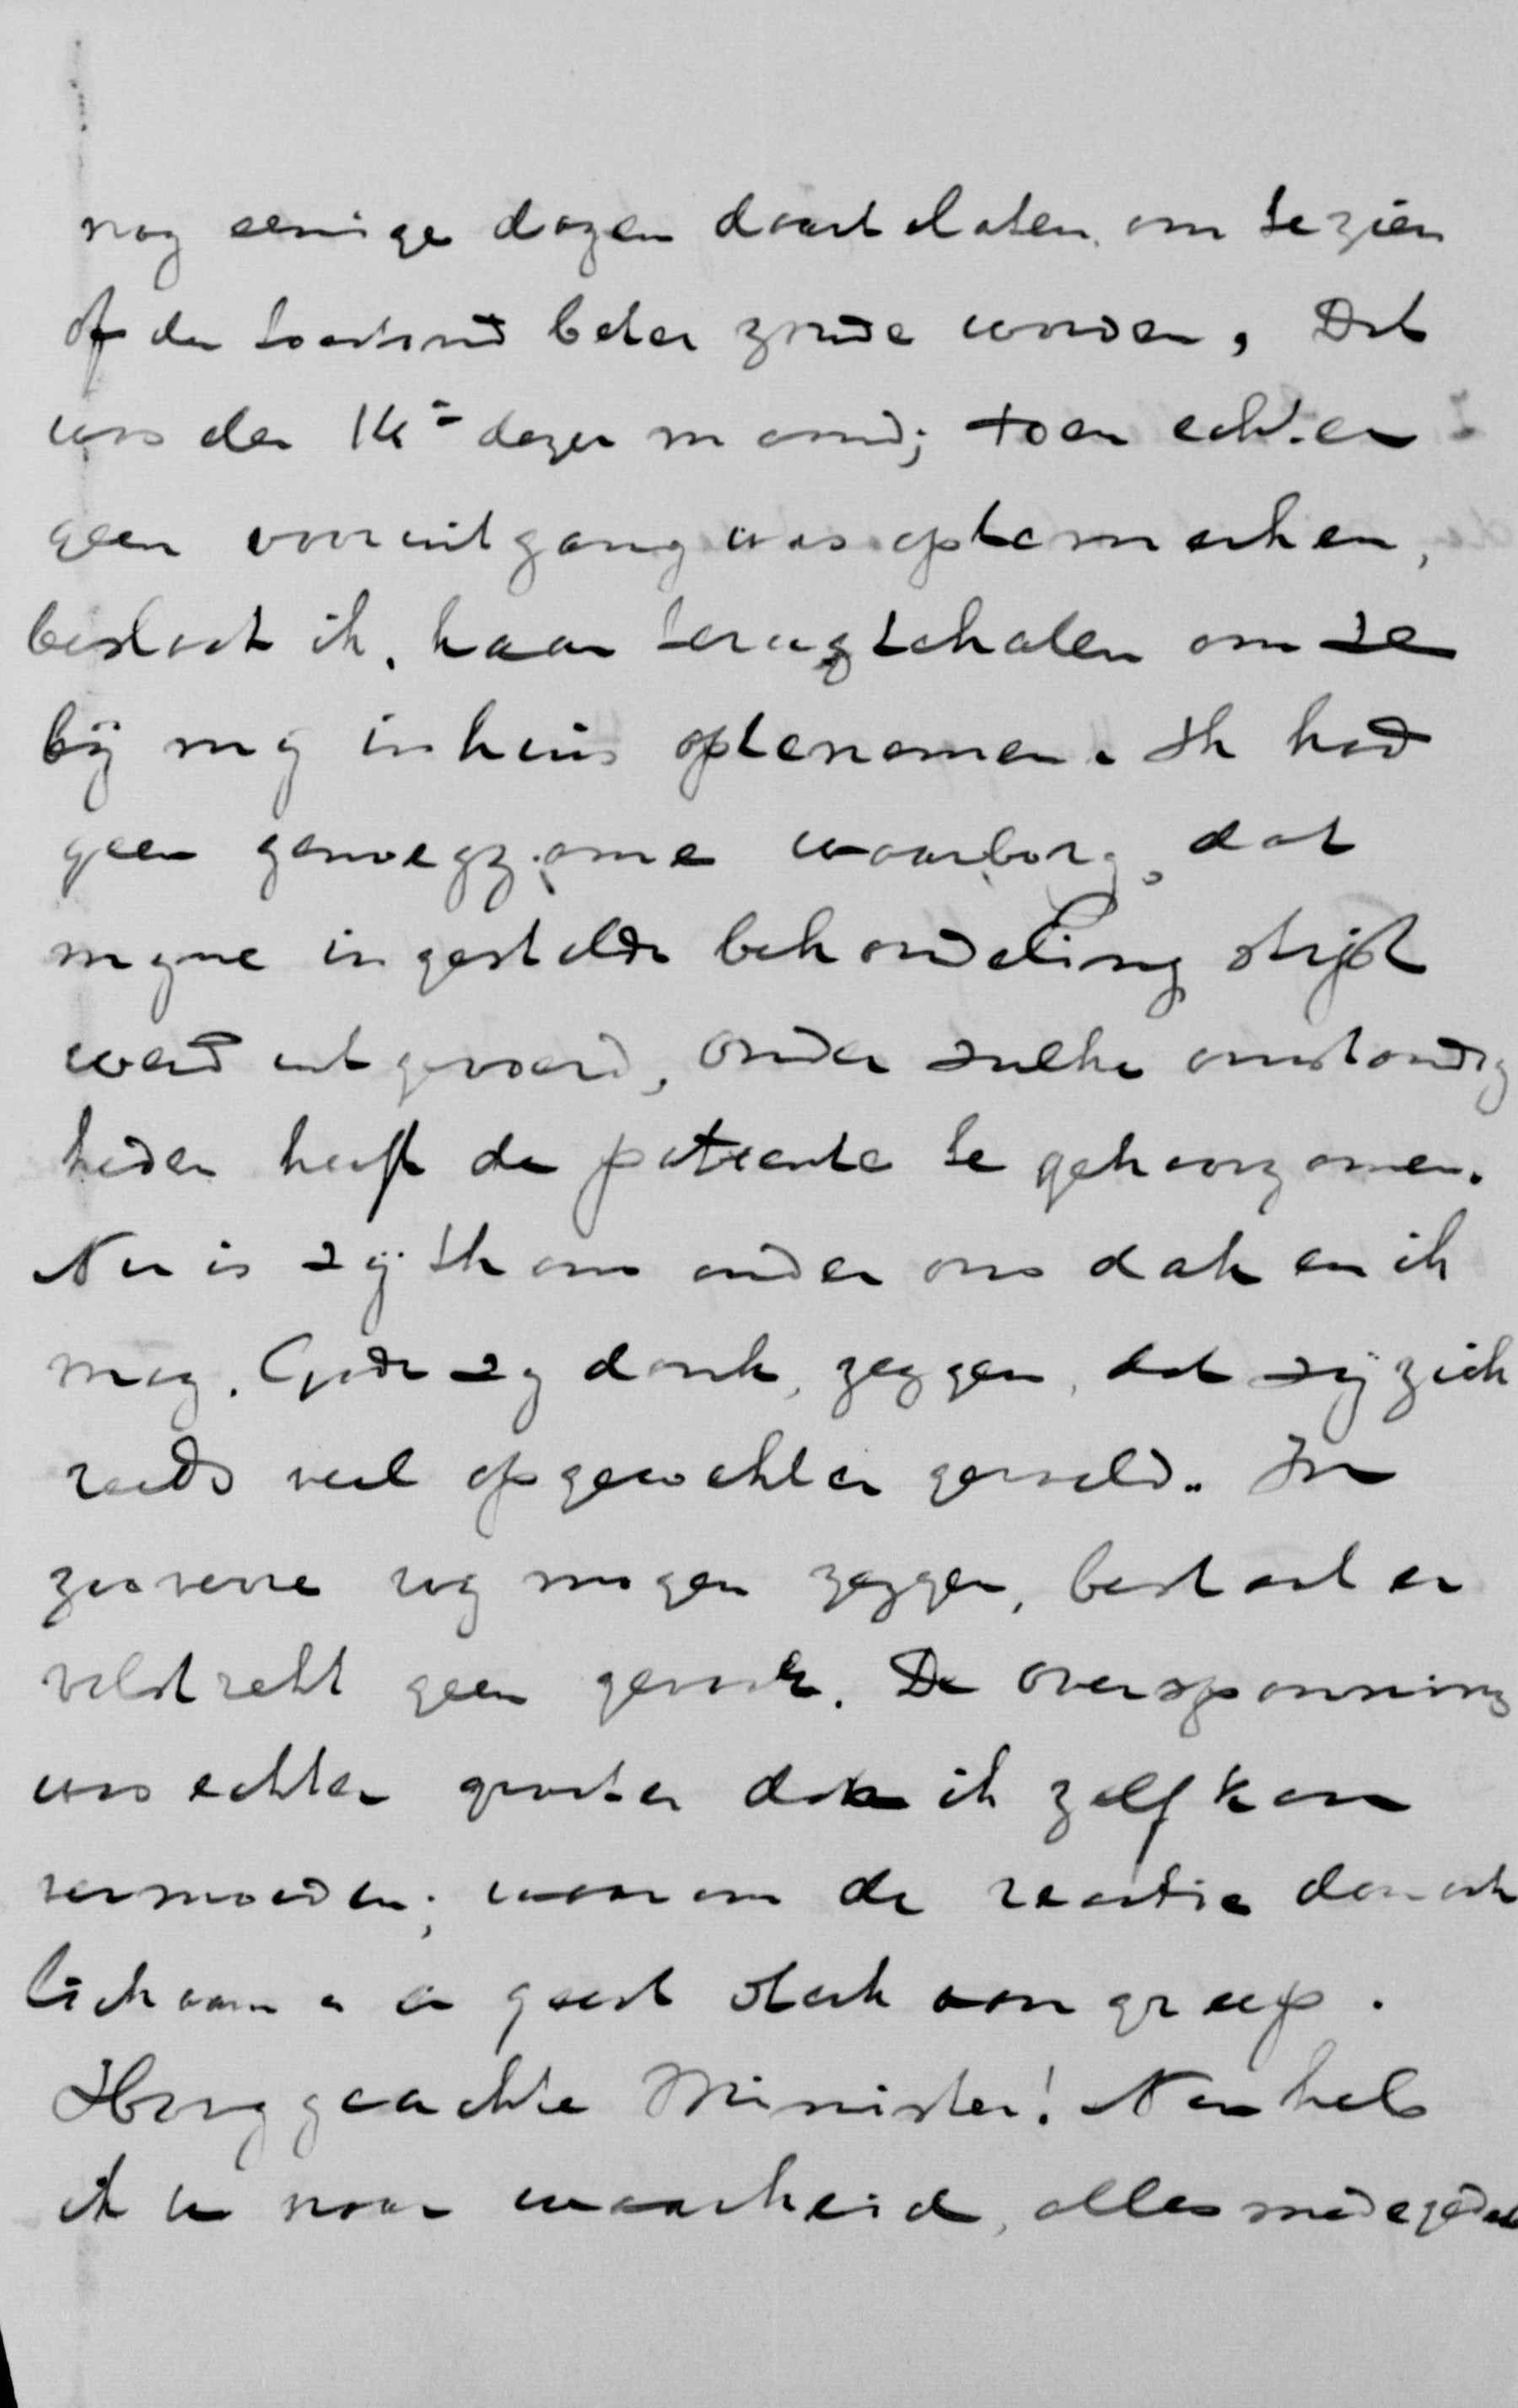 nog eenige dagen daar te laten, om te zien
of de toestand beter zoude worden, Dit
was den 14e dezer maand; toen echter
geen vooruitgang was optemerken,
besloot ik, haar terugtehalen om ze
bij mij in huis optenemen. Ik had
geen genoegzame waarborg, dat
mijne ingestelde behandeling stipt
werd uitgevoerd, onder zulke omstandig
heden heeft de patiente te gehoorzamen.
Nu is zij thans onder ons dak en ik
mag, Gode zij dank, zeggen, dat zij zich
reeds veel opgewekter gevoeld. In
zooverre wij mogen zeggen, bestaat er
volstrekt geen gevaar. De overspanning
was echter grooter dan ik zelf kon
vermoeden; waarom de reactie dan ook
lichaam en geest sterk aangreep.
Hooggeachte Minister! Nu heb
ik U naar waarheid, alles medegedeeld